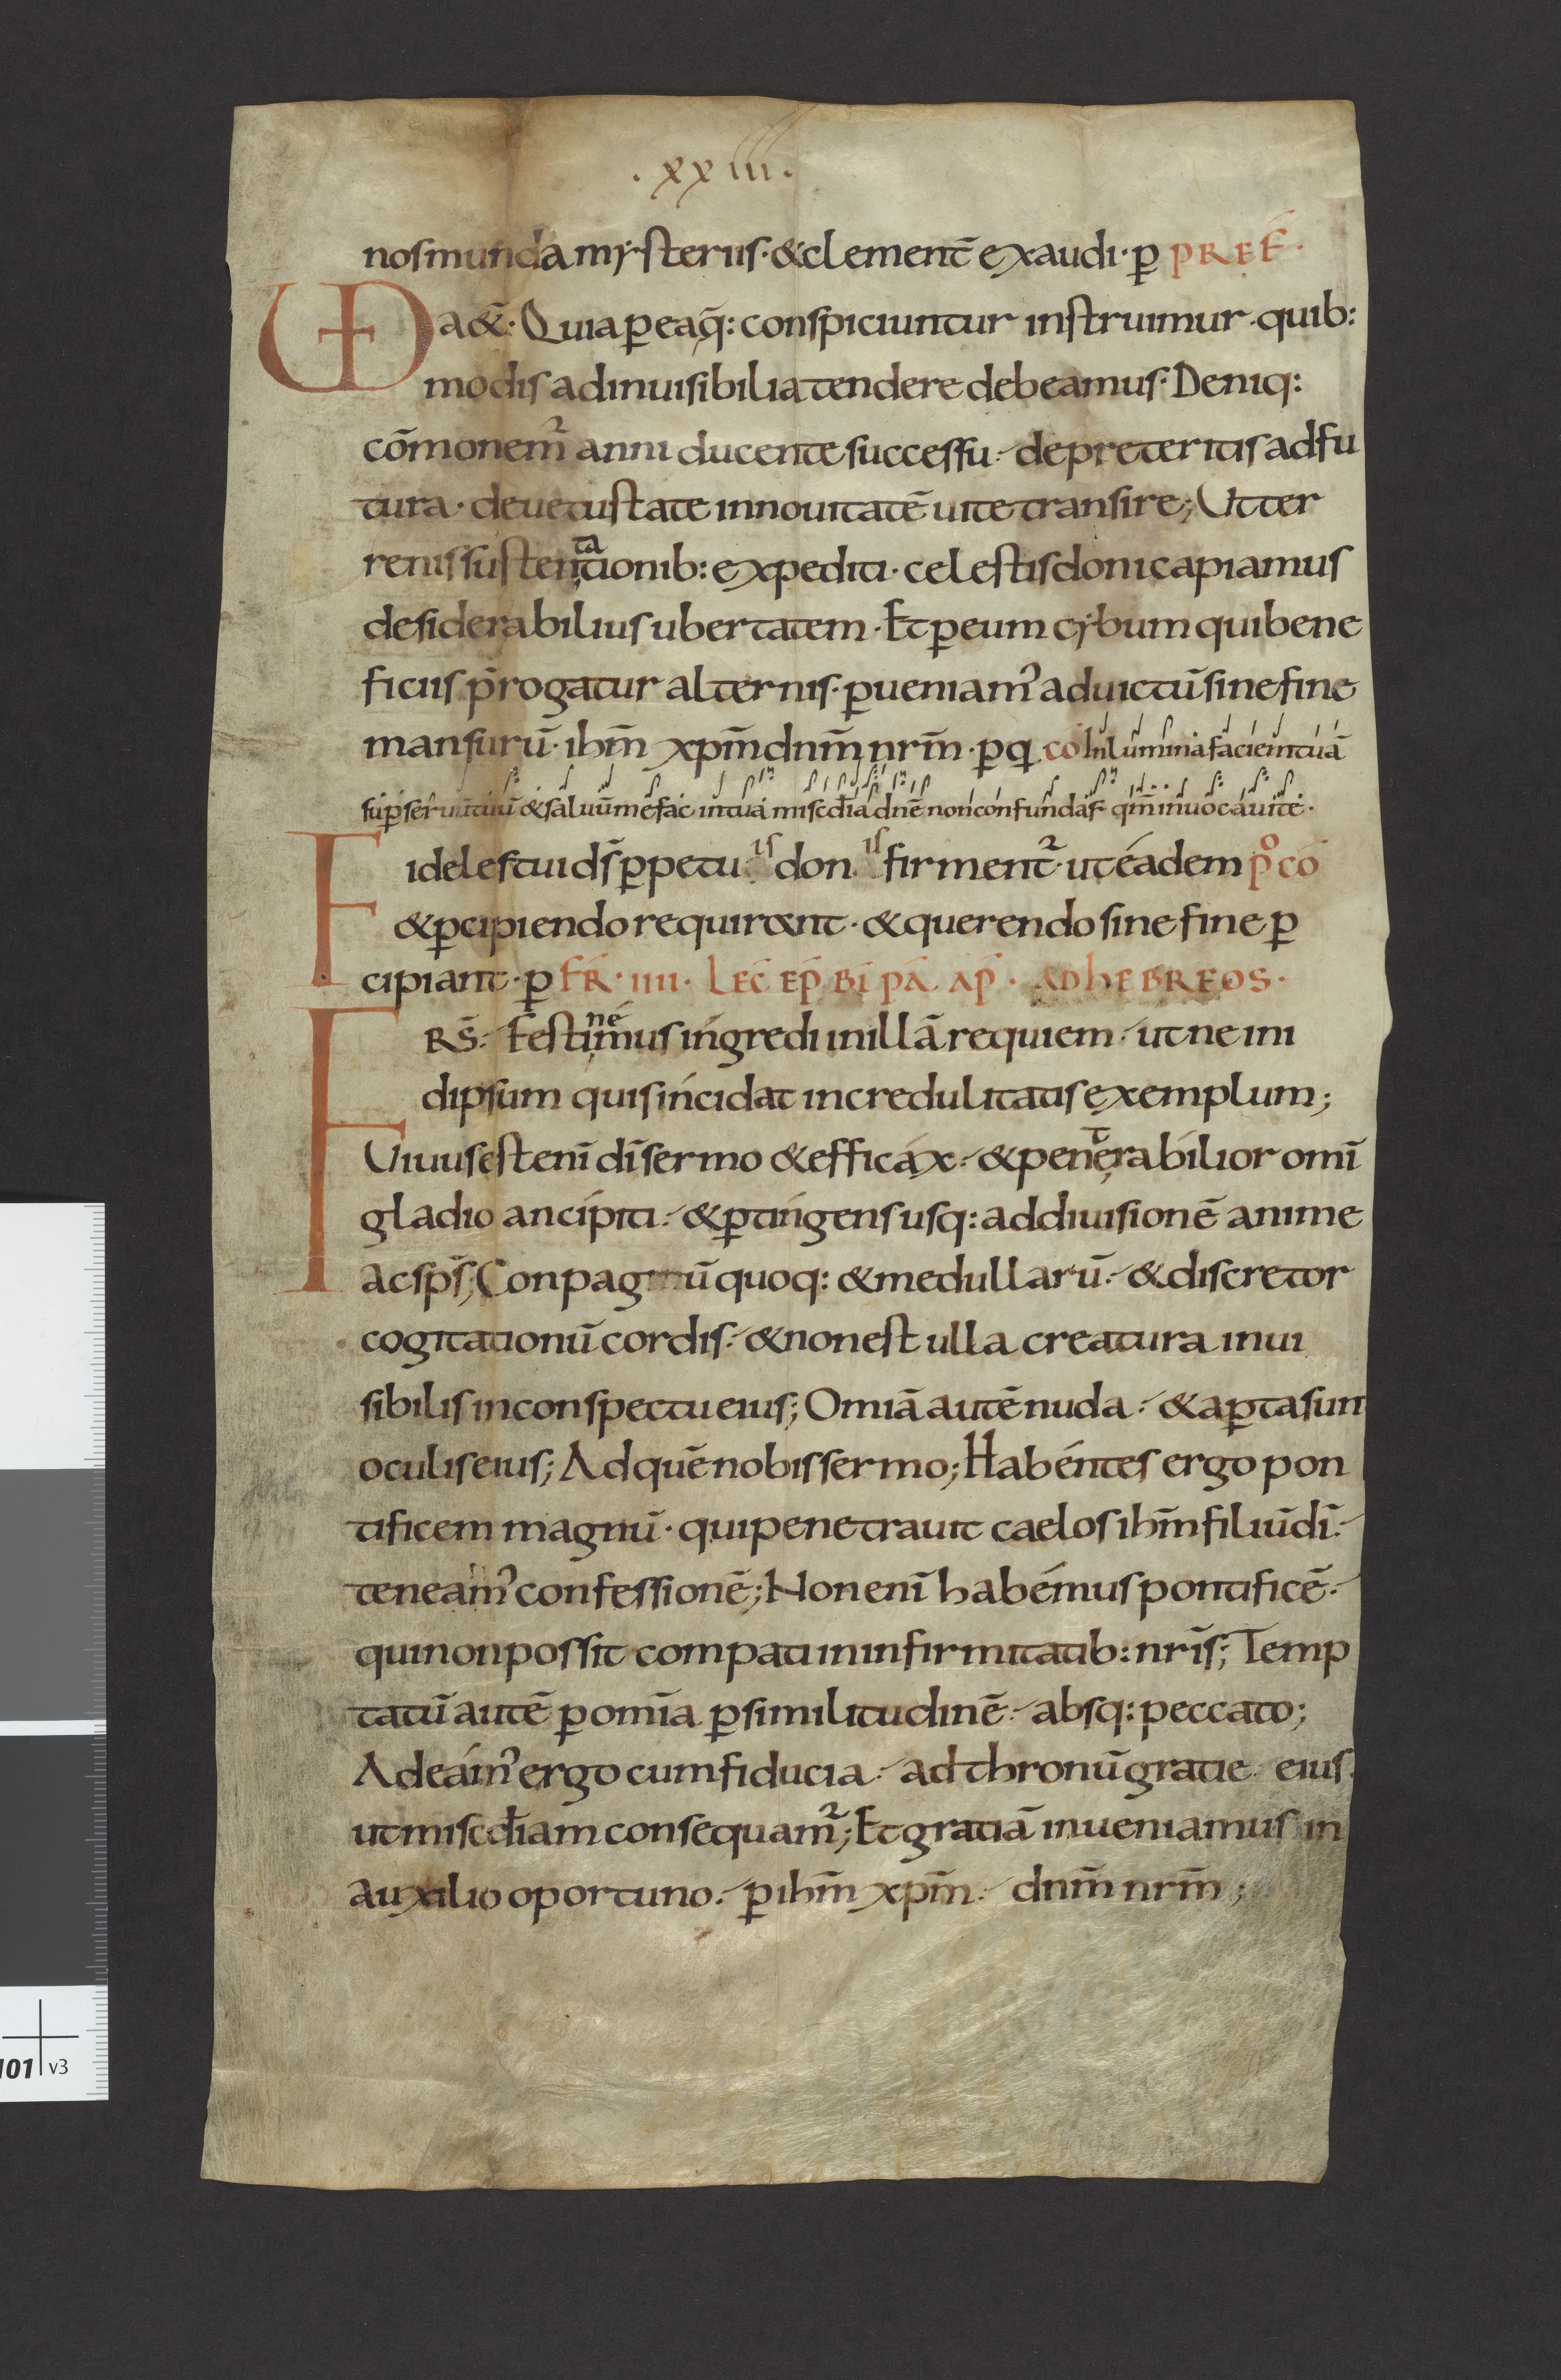 . xxiiii .
nos munda mysteriis· & clement̄ exaudi· ꝑ PREF̄·
VD a&̄· Quia ꝑ ea q̄: conspiciuntur instruimur· quib:
modis ad inuisibilia tendere debeamus· Deniq:
cōmonem̄² anni ducente successu·- de preteritis ad fu
tura· de uetustate in nouitatē uite transire; Ut ter
renis sustentationib: expediti· celestis doni capiamus
desiderabilius ubertatem· Et ꝑ eum cybum qui bene
ficiis ꝓrogatur alternis· ꝑueniam᾽ ad uictū sine fine
mansurū· ihm̄ xp̄m dnm̄ nrm̄· ꝑ q CO Inlumina faciem tuā
suꝑ seruū tuū & saluū me fac in tua misc̄dia dnē non confundar· qm̄ inuocaui te·
Fideles tui ds̄ ꝑpetuis donis firment²· ut eadem P̊ CŌ
& ꝑcipiendo requirant· & querendo sine fine ꝑ
cipiant· ꝑ FR̄· IIII· LEC̄ EP̄ BĪ PĀ AP̄· AD HEBREOS·
FRS̄·- Festinemus ingredi in illā requiem·- ut ne in i
dipsum quis incidat incredulitatis exemplum;
Uiuus est enī dī sermo & efficax·- & penetrabilior omī
gladio ancipiti·- & ꝑtingens usq: ad diuisionē anime
ac sps̄; Conpagū quoq: & medullarū·- & discretor
cogitationū cordis·- & non est ulla creatura inui
sibilis in conspectu eius; Omīa autē nuda·- & aꝑta sunt
oculis eius; Ad quē nobis sermo; Habentes ergo pon
tificem magnū· qui penetrauit caelos ihm̄ filiū dī·-
teneam᾽ confessionē; Non enī habemus pontificē·-
qui non possit compati in infirmitatib: nrīs; Temp
tatū autē ꝑ omīa ꝑ similitudinē·- absq: peccato;
Adeam᾽ ergo cum fiducia·- ad thronū gratie eius·
ut misc̄diam consequam̄²; Et gratiā inueniamus in
auxilio oportuno·- ꝑ ihm̄ xp̄m·- dnm̄ nrm̄;
101 v3